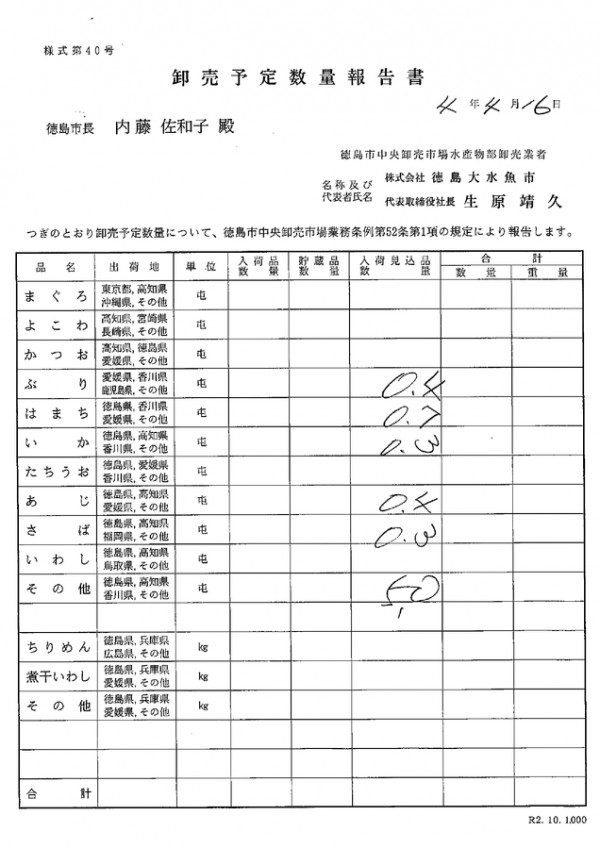 様式第40号
卸売予定数量報告書
4年4月16日
徳島市長 内藤 佐和子 殿
徳島市中央卸売市場水産物部卸売業者
名称及び 株式会社 徳島大水魚市
代表者氏名 代表取締役社長 生原靖久
つぎのとおり卸売予定数量について、徳島市中央卸売市場業務条例第52条第1項の規定により報告します。
品名 出荷地 単位 入荷品数量 貯蔵品数量 入荷見込品数量 合計
数量 重量
まぐろ 東京都, 高知県 屯
沖縄県, その他
よこわ 高知県, 宮崎県 屯
長崎県, その他
かつお 高知県, 徳島県 屯
愛媛県, その他
ぶり 愛媛県, 香川県 屯 0.4
鹿児島県, その他
はまち 徳島県, 香川県 屯 0.7
愛媛県, その他
いか 徳島県, 高知県 屯 0.3
香川県, その他
たちうお 徳島県, 愛媛県 屯
香川県, その他
あじ 徳島県, 高知県 屯 0.4
愛媛県, その他
さば 徳島県, 高知県 屯 0.3
福岡県, その他
いわし 徳島県, 高知県 屯
鳥取県, その他
その他 徳島県, 高知県 屯
香川県, その他
ちりめん 徳島県, 兵庫県 kg
広島県, その他
煮干いわし 徳島県, 兵庫県 kg
愛媛県, その他
その他 徳島県, 兵庫県 kg
愛媛県, その他
合計
R2. 10. 1,000